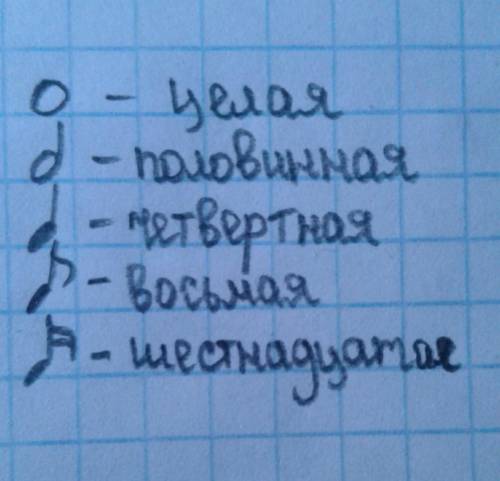 𝅝 - целая
𝅗𝅥 - половинная
♩ - четвертная
♪ - восьмая
𝅘𝅥𝅯 - шестнадцатая